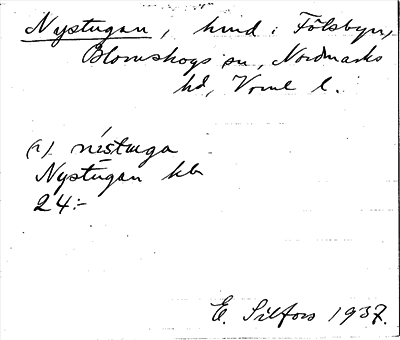 Nystugan, hmd i Fölsbyn,
Blomskogs sn, Nordmarks
hd, Vrml l.
(i) nı̀stuga
Nystugan kb
24:-
E. Silfors 1937.